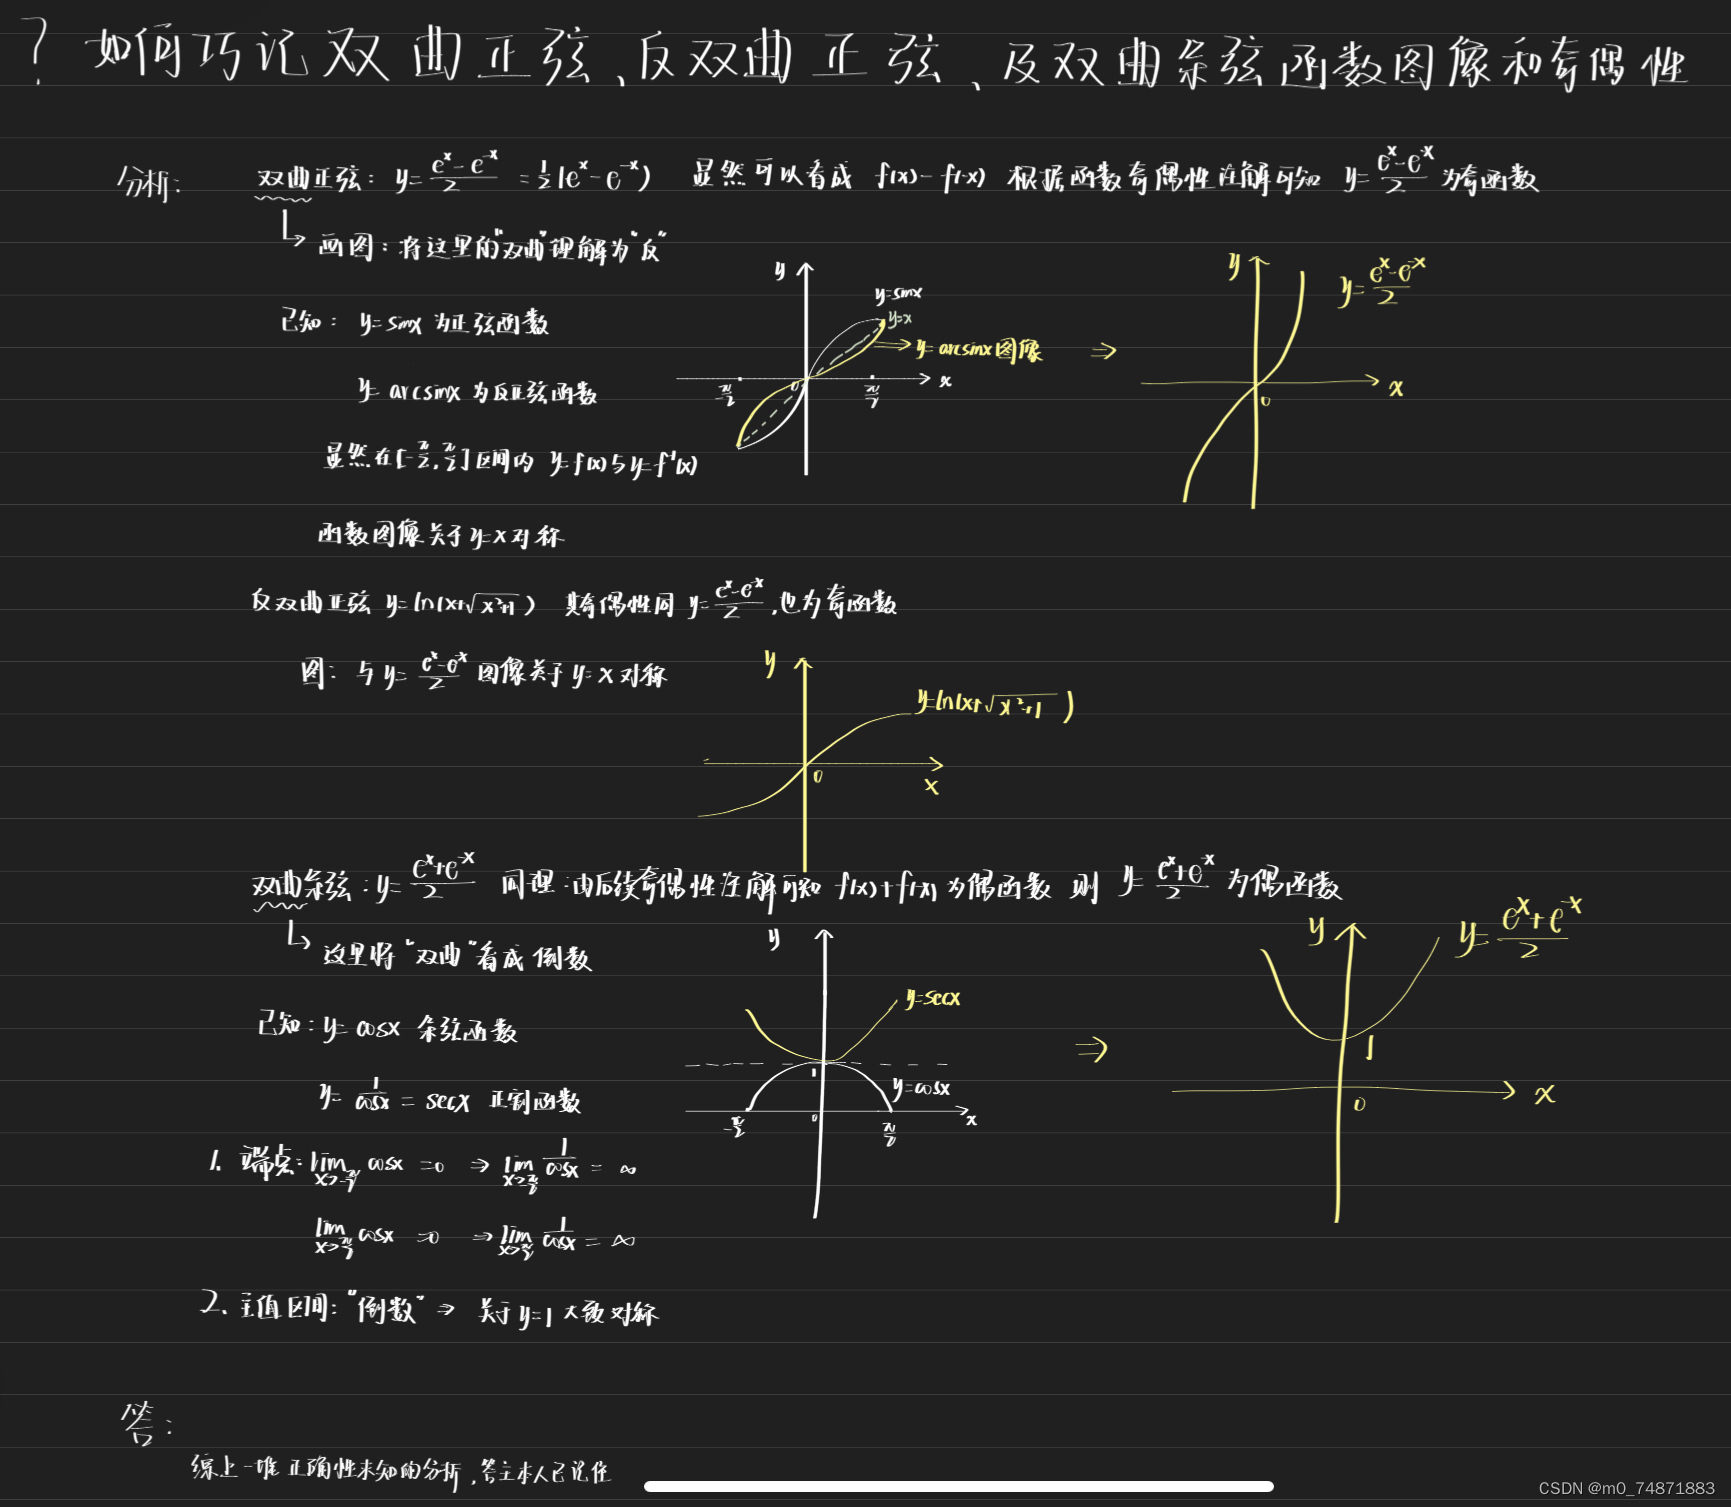 ? 如何巧记双曲正弦、反双曲正弦、及双曲余弦函数图像和奇偶性
分析: 双曲正弦: y=(e^x-e^-x)/2 =1/2(e^x-e^-x) 显然可以看成 f(x)-f(-x) 根据函数奇偶性注解可知 y=(e^x-e^-x)/2 为奇函数
画图: 将这里的"双曲"理解为"反"
已知: y=sinx 为正弦函数
y=arcsinx 为反正弦函数
显然在[-π/2,π/2]区间内 y=f(x)与y=f⁻¹(x)
函数图像关于y=x对称
y
y=sinx
y=x
y=arcsinx图像 ⇒
-π/2 0 π/2 x
y
y=(e^x-e^-x)/2
0 x
反双曲正弦 y=ln(x+√(x²+1)) 其奇偶性同 y=(e^x-e^-x)/2,也为奇函数
图: 与y=(e^x-e^-x)/2 图像关于y=x对称
y
y=ln(x+√(x²+1))
0 x
双曲余弦: y=(e^x+e^-x)/2 同理:由后续奇偶性注解可知 f(x)+f(-x)为偶函数 则 y=(e^x+e^-x)/2 为偶函数
这里将"双曲"看成倒数
已知: y=cosx 余弦函数
y=1/cosx=secx 正割函数
1. 端点: lim x→-π/2 cosx=0 ⇒ lim x→-π/2 1/cosx=∞
lim x→π/2 cosx=0 ⇒ lim x→π/2 1/cosx=∞
2. 主值区间: "倒数" ⇒ 关于y=1大致对称
y
y=secx
1
y=cosx
-π/2 0 π/2 x
⇒
y
y=(e^x+e^-x)/2
1
0 x
答:
综上一堆正确性未知的分析,答主本人已记住
CSDN @m0_74871883